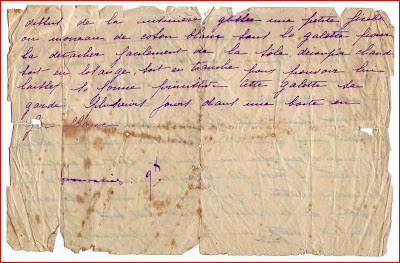 dessus de la         glisser une petite ficelle
ou morceau de coton blanc sous la galette pour
la détacher facilement de la tôle découper chaud
soit en losange, soit en tranche pour pouvoir lui
laisser sa forme primitive cette galette se
garde plusieurs jours dans une boite en
fer blanc